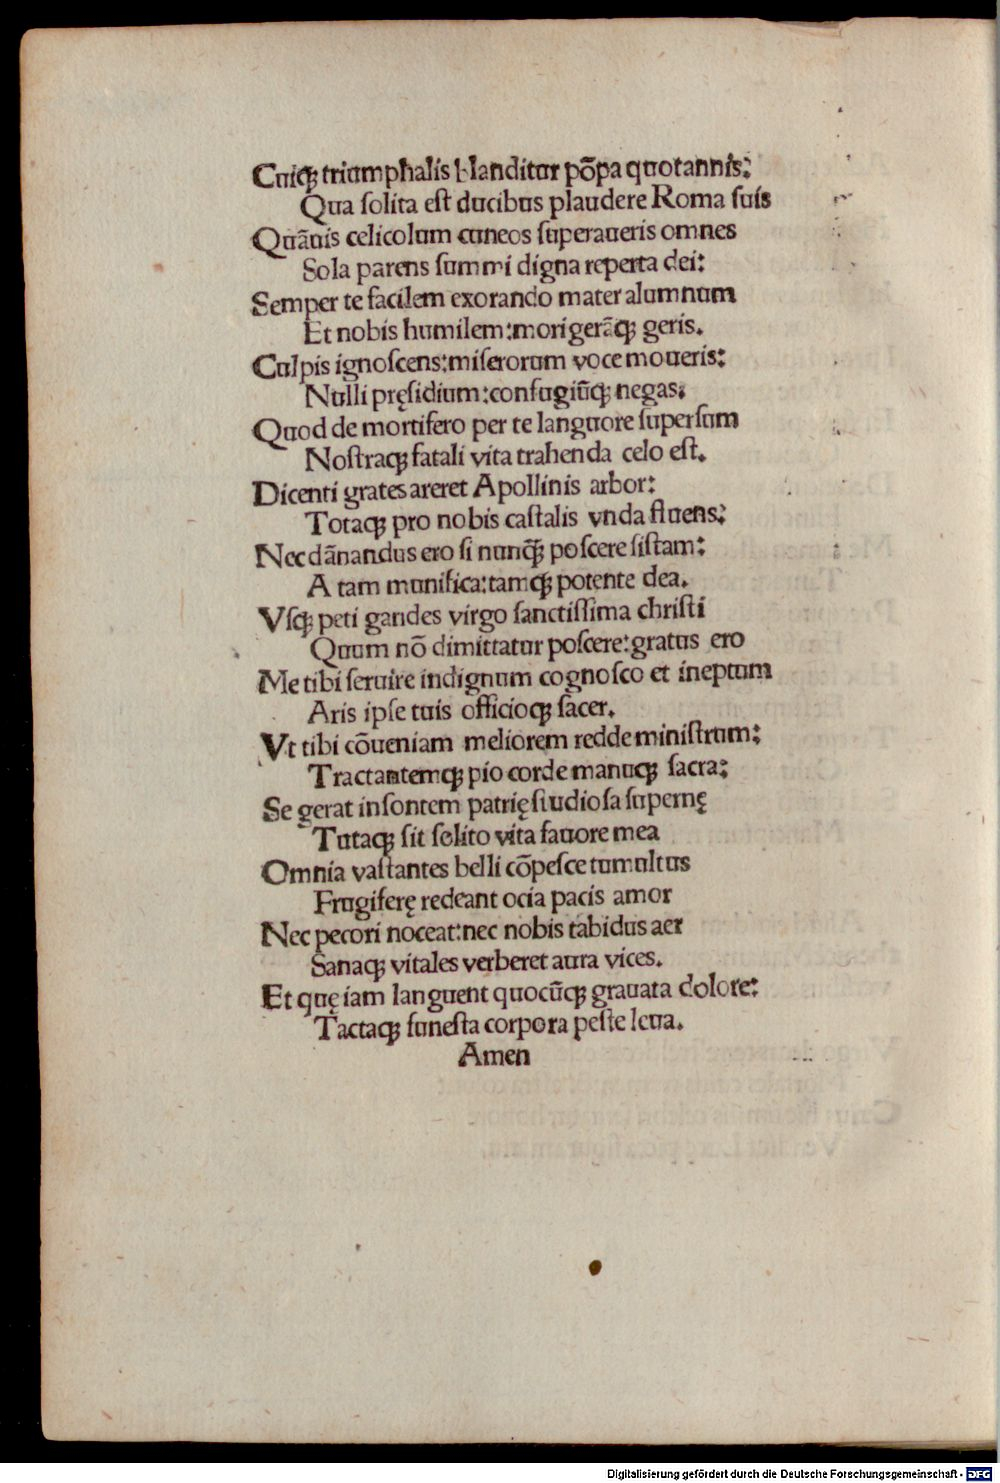 Cuiqȝ triumphalis blanditur põpa quotannis:
Qua ſolita eſt ducibus plaudere Roma ſuis
Quãuis celicolum cuneos ſuperaueris omnes
Sola parens ſummi digna reperta dei:
Semper te facilem exorando mater alumnum
Et nobis humilem:morigerãqȝ geris.
Culpis ignoſcens:miſerorum voce moueris:
Nulli pręſidium:confugiũqȝ negas:
Quod de mortifero per te languore ſuperſum
Noſtraqȝ fatali vita trahenda celo eſt.
Dicenti grates areret Apollinis arbor:
Totaqȝ pro nobis caſtalis vnda fluens:
Nec dãnandus ero ſi nunq̃ȝ poſcere ſiſtam:
A tam munifica:tamqȝ potente dea.
Vſqȝ peti gaudes virgo ſanctiſſima chriſti
Quum nõ dimittatur poſcere:gratus ero
Me tibi ſeruire indignum cognoſco et ineptum
Aris ipſe tuis officioqȝ ſacer.
Vt tibi cõueniam meliorem redde miniſtrum:
Tractantemqȝ pio corde manuqȝ ſacra:
Se gerat inſontem patrię ſtudioſa ſupernę
Tutaqȝ ſit ſolito vita fauore mea
Omnia vaſtantes belli cõpeſce tumultus
Frugiferę redeant ocia pacis amor
Nec pecori noceat:nec nobis tabidus aer
Sanaqȝ vitales verberet aura vices.
Et quę iam languent quocũqȝ grauata dolore:
Tactaqȝ funeſta corpora peſte leua.
Amen
Digitalisierung gefördert durch die Deutsche Forschungsgemeinschaft - DFG